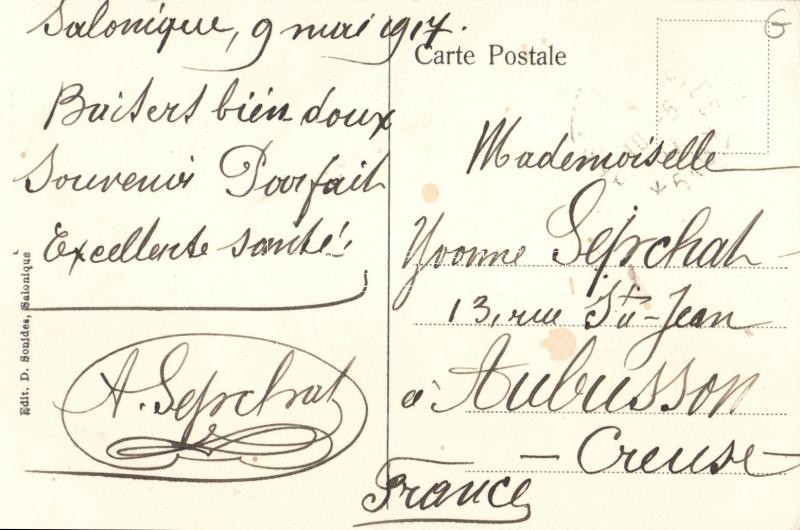 Salonique, 9 mai 1917.
Baisers bien doux
Souvenir Parfait
Excellente santé!
A. Sepchat
Edit. D. Sonides, Salonique
Carte Postale
G
Mademoiselle
Yvonne Sepchat
13, rue St-Jean
à Aubusson
- Creuse -
France